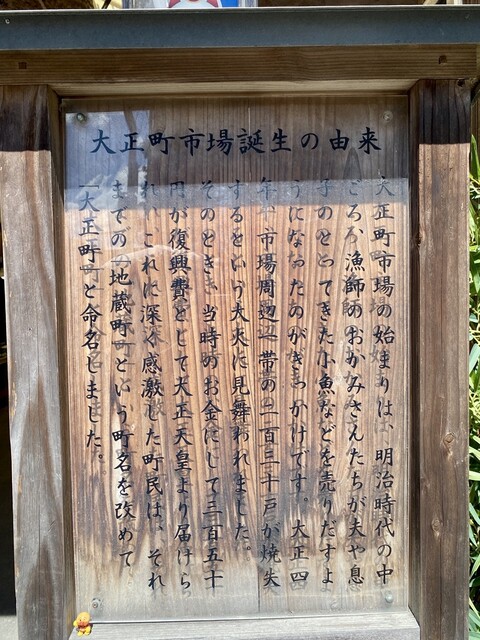 大正町市場誕生の由来
大正町市場の始まりは、明治時代の中
ごろ、漁師のおかみさんたちが夫や息
子のとってきた小魚などを売りだすよ
うになったのがきっかけです。大正四
年、市場周辺一帯の二百三十戸が焼失
するという大火に見舞われました。
そのとき、当時のお金にして三百五十
円が復興費として大正天皇より届けら
れ、これに深く感激した町民は、それ
までの「地蔵町」という町名を改めて
「大正町」と命名しました。